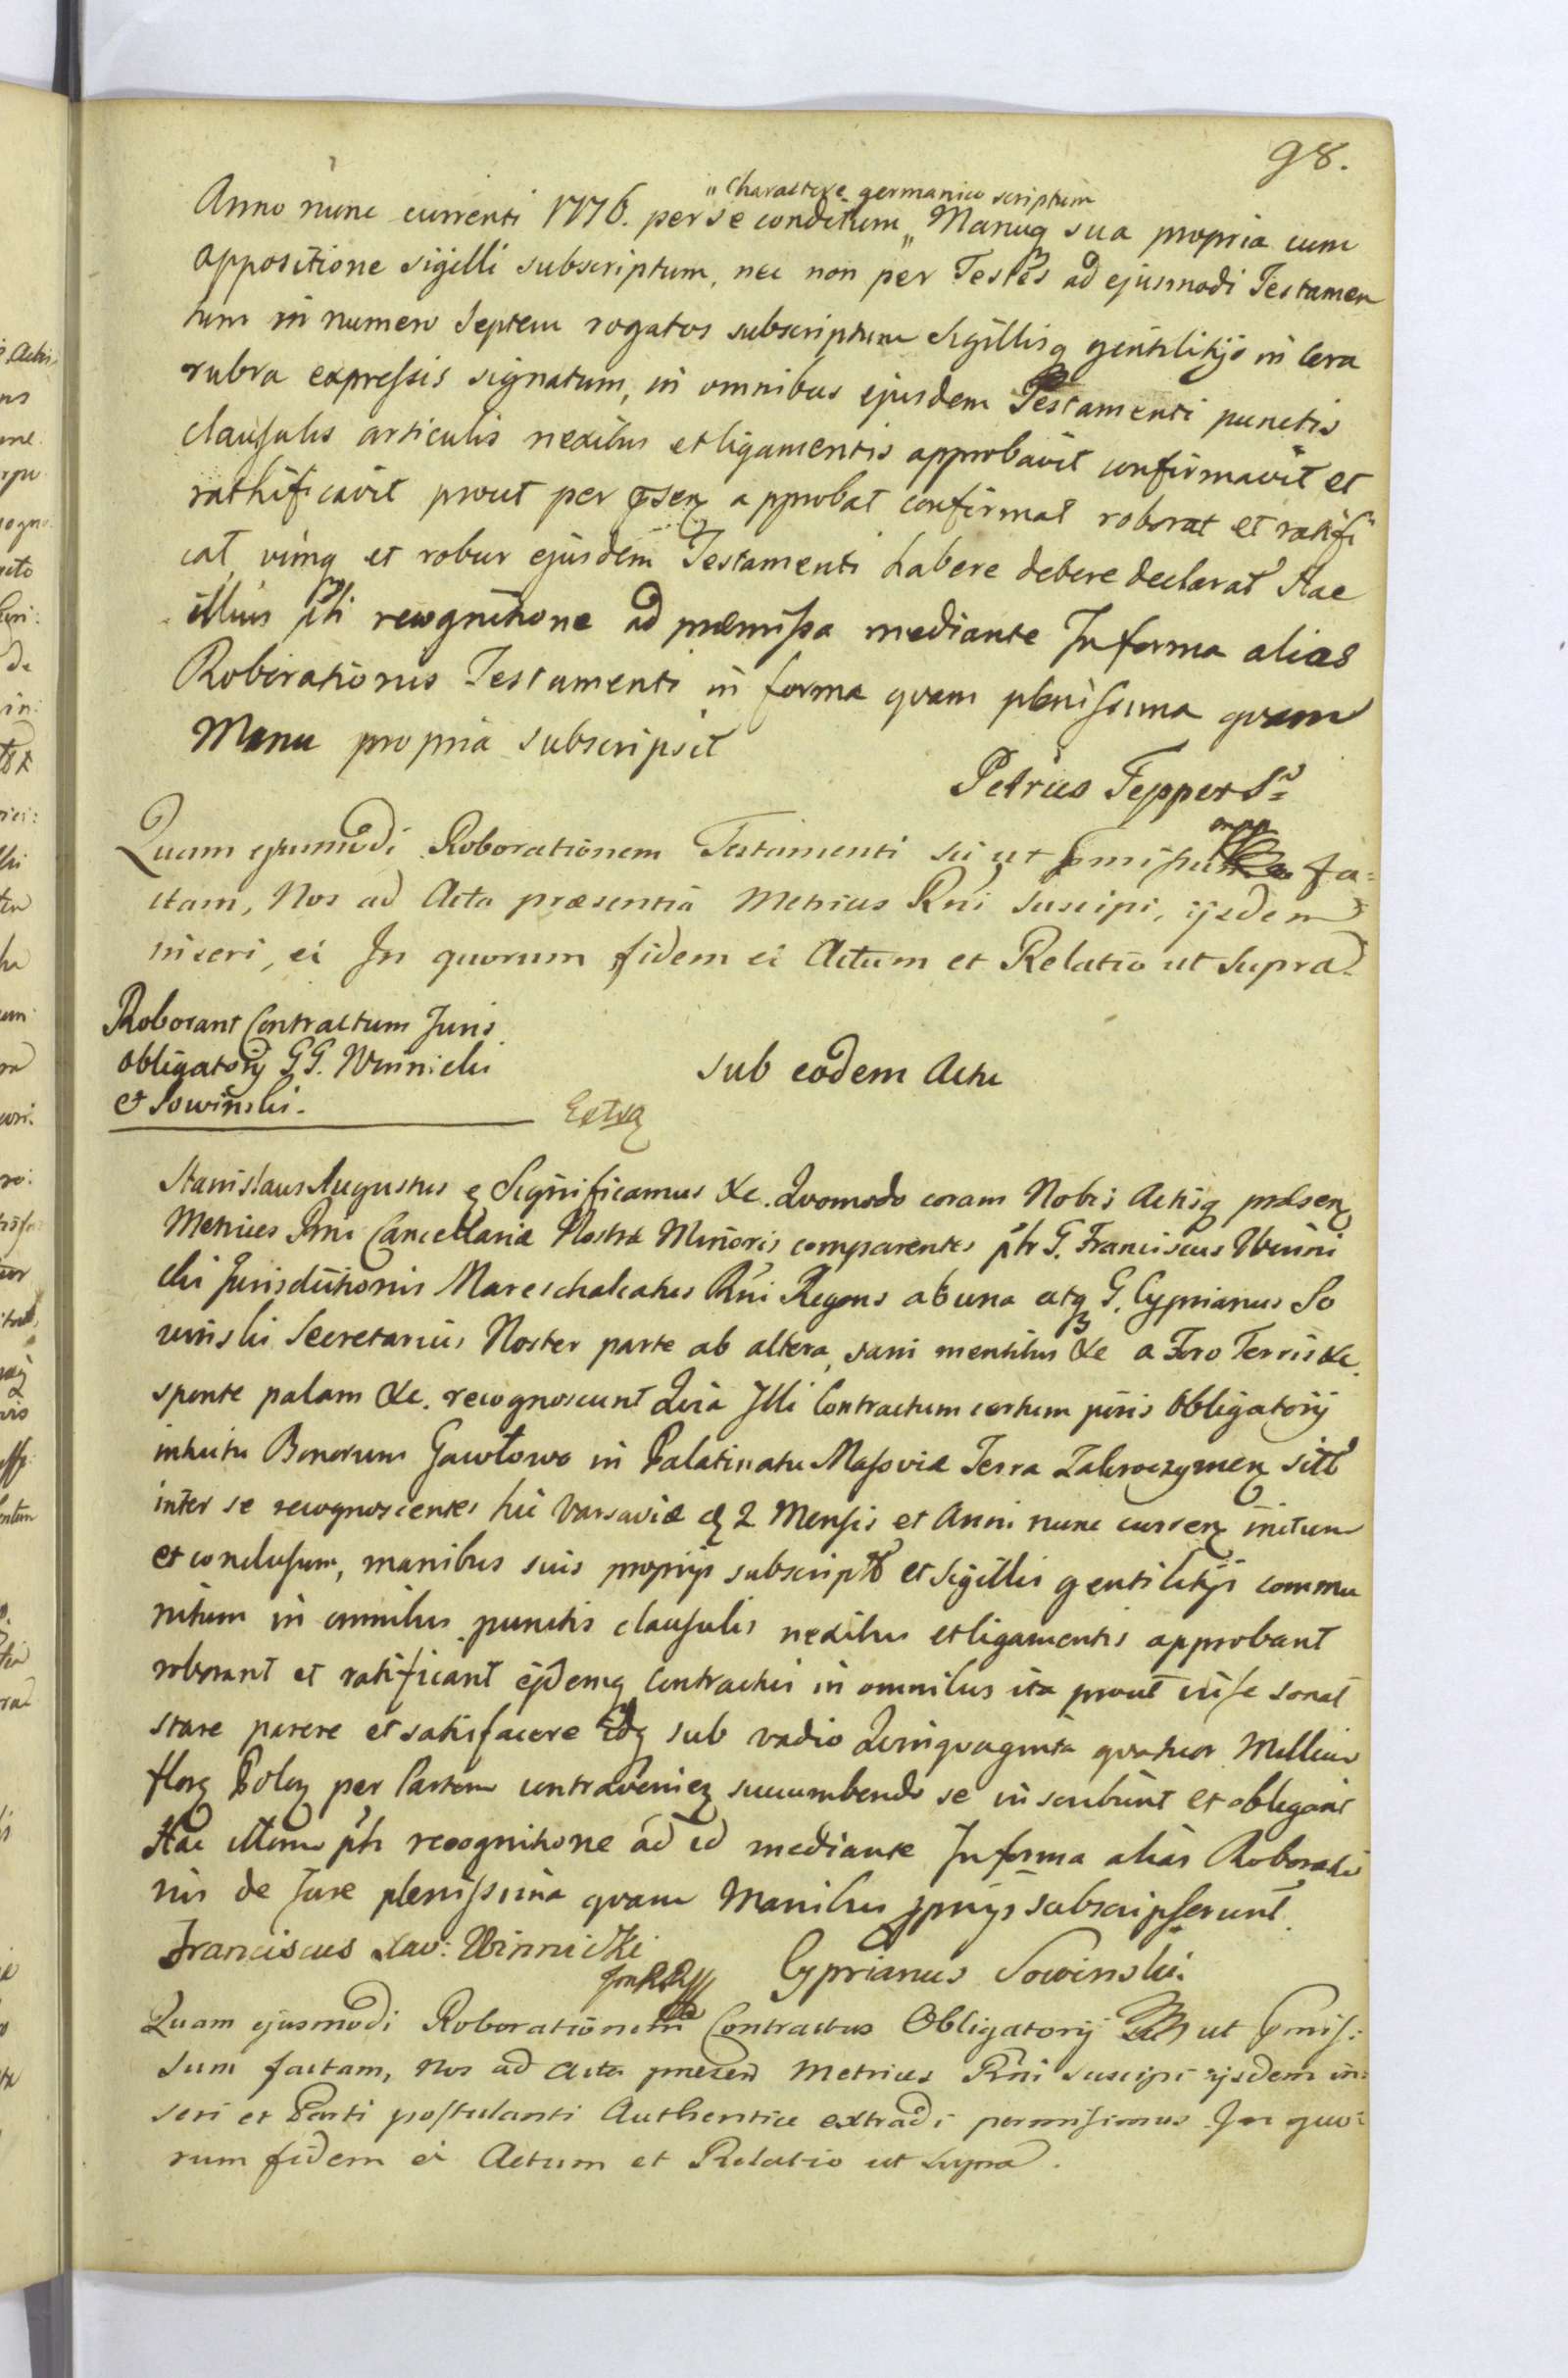 98.
Anno nunc currenti 1776. per se conditum „ Manuq sua propria cum
„ Charactere germanico scriptum
appositione sigilli subscriptum, nec non per Testes ad ejusmodi Testamen
tum in numero Septem rogatos subscriptum Sigillisq gentilitijs in Cera
rubra expressis signatum, in omnibus ejusdem Testamenti punctis
clausulis articulis nexibus et ligamentis approbavit confirmavit et
rathificavit prout per psen approbat confirmat roborat et ratifi
cat, vimq et robur ejusdem Testamenti habere debere declarat Hac
illius pti recognitione ad præmissa mediante In forma alias
Roborationis Testamenti in forma quam plenissima quam
Manu propria subscripsit
Petrus Tepper Sr
Quam ejusmodi Roborationem Testamenti sui ut pmissum fa=
ctam, Nos ad Acta præsentia Metrices Rni suscipi, ijsdem
inseri, et In quorum fidem et Actum et Relatio ut supra.
Roborant Contractum Juris
obligatorij GG. Winnicki
et Sowinski.
sub eodem Actu
Extra
Stanislaus Augustus Significamus &c. Quomodo coram Nobis Actisq præsen
Metrices Rni Cancellariæ Nostræ Minoris comparentes ptr G. Franciscus Winni
cki Jurisdictionis Mareschalcatus Rni Regens ab una atq G. Cyprianus So
winski Secretarius Noster parte ab altera, sani mentibus &c a Foro Terris &c.
sponte palam &c. recognoscunt Quia Illi Contractum certum juris Obligatorij
intuitu Bonorum Gawłowo in Palatinatu Masoviæ Terra Zakroczymen sitt
inter se recognoscentes hic Varsaviæ d 2 Mensis et Anni nunc curren initum
et conclusum, manibus suis proprijs subscript et Sigillis gentilitijs commu
nitum in omnibus punctis clausulis nexibus et ligamentis approbant
roborant et ratificant ejdemq Contractui in omnibus ita prout in se sonat
stare parere et satisfacere idq sub vadio Quinquaginta quatuor Millium
flor Polon per Partem contravenien succumbendo se inscribunt et obligant
Hac illorum ptr recognitione ad id mediante In forma alias Roboratio
nis de Jure plenissima quam Manibus pprijs subscripserunt.
Franciscus Xav: Winnicki
Cyprianus Sowinski.
Quam ejusmodi Roborationem Contractus Obligatorij ut pmis:
sum factam, Nos ad Acta præsen Metrices Rni suscipi ijsdem in:
seri et Parti postulanti Authentice extradi permisimus In quo:
rum fidem et Actum et Relatio ut supra.